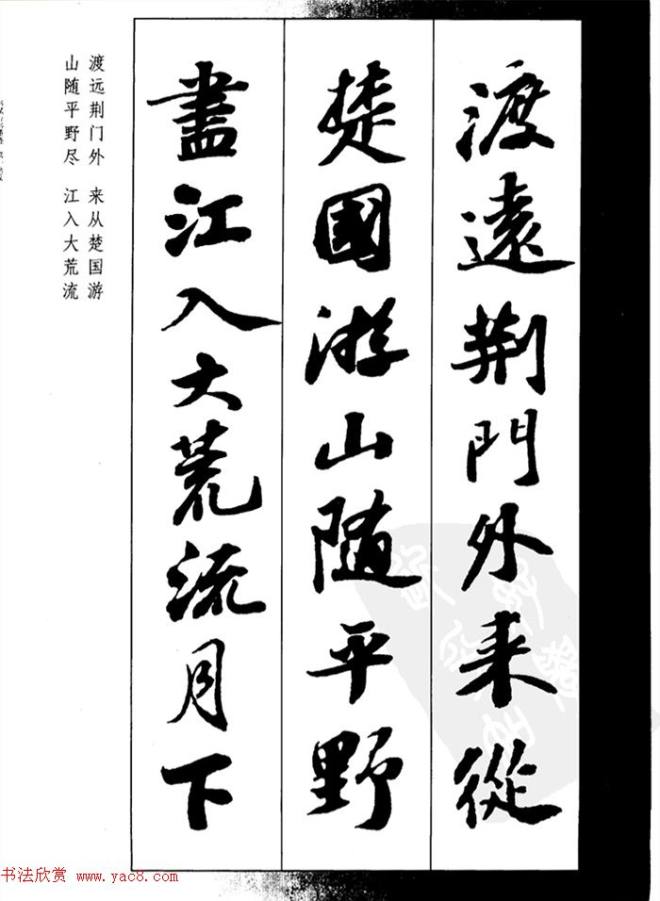 渡遠荆門外来從
楚國游山随平野
盡江入大荒流月下
渡远荆门外 来从楚国游
山随平野尽 江入大荒流
书法欣赏 www.yac8.com